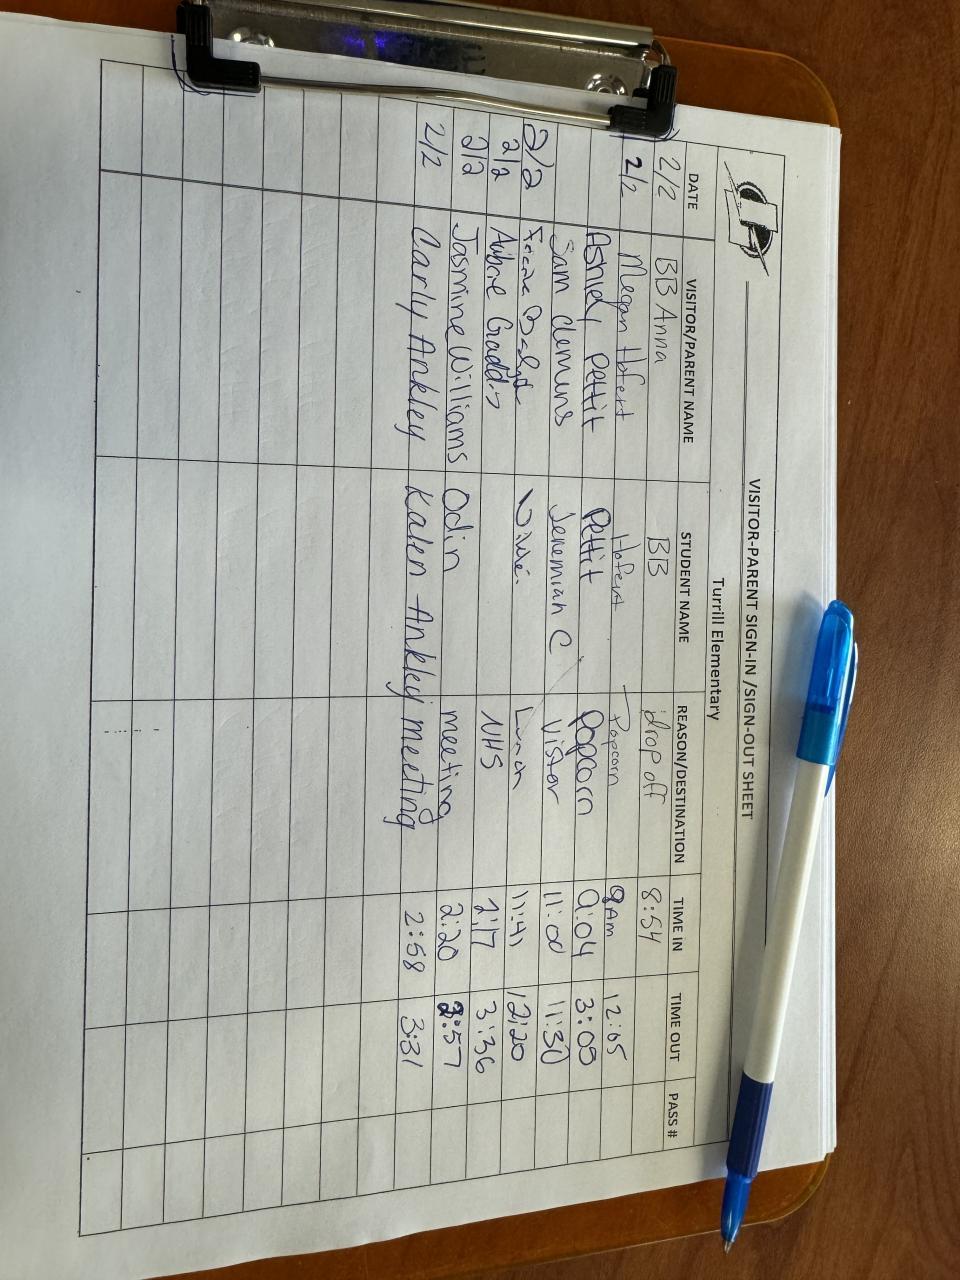 VISITOR-PARENT SIGN-IN /SIGN-OUT SHEET
Turrill Elementary
DATE VISITOR/PARENT NAME STUDENT NAME REASON/DESTINATION TIME IN TIME OUT PASS #
2/2 BB Anna BB drop off 8:54
2/2 Megan Hofert Hofert Popcorn 9AM 12:05
Ashley Pettit Pettit Popcorn 9:04 3:05
Sam Clemuns Jeremiah C Vistor 11:00 11:30
2/2 Lunch 11:41 12:20
2/2 Gaddis NHS 2:17 3:36
2/2 Jasmine Williams Odin meeting 2:20 2:57
2/2 Carly Ankley Kalen Ankley meeting 2:58 3:31